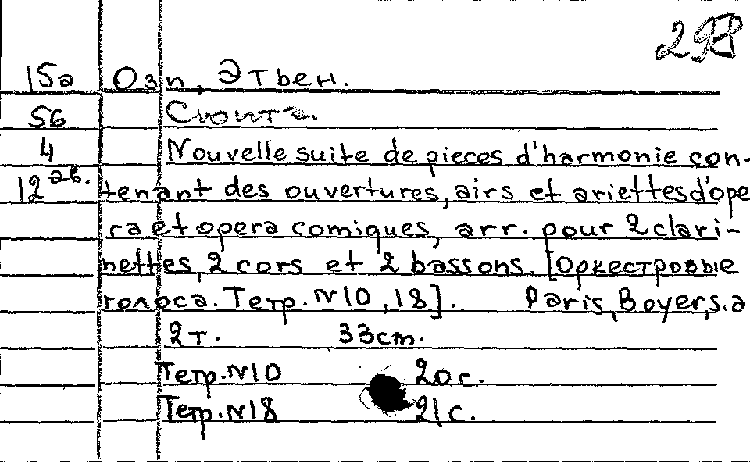 298
15а Озп, Этьен.
56 Сюита.
4 Nouvelle suite de pieces d'harmonie con-
12 ав. tenant des ouvertures, airs et ariettes d'ope
ra et opera comiques, arr. pour 2 clari-
nettes, 2 cors et 2 bassons. [Оркестровые
голоса. Тетр. №10, 18]. Paris, Boyer, s.a
2т. 33cm.
Тетр. №10 20с.
Тетр. №18 21с.